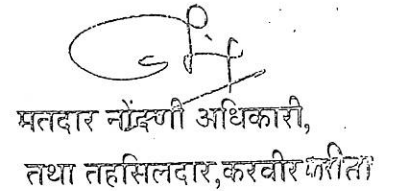 मतदार नोंदणी अधिकारी,
तथा तहसिलदार,करवीर करीता